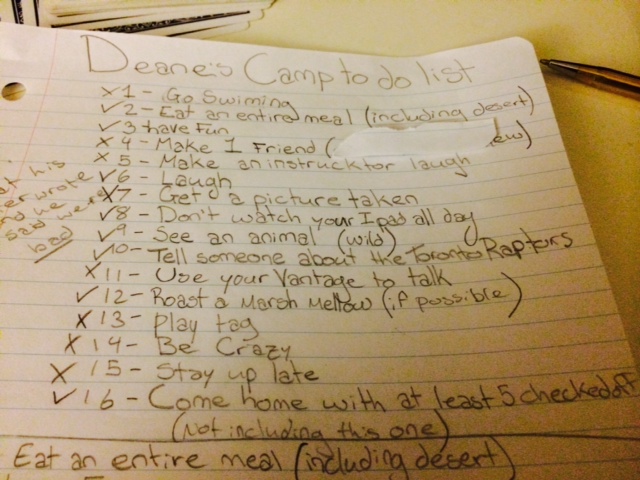 Deane's Camp to do list
x 1 - Go Swiming
✓ 2 - Eat an entire meal (including desert)
✓ 3 have fun
x 4 - Make 1 Friend (
x 5 - Make an instrucktor laugh
✓ 6 - Laugh
x 7 - Get a picture taken
✓ 8 - Don't watch your Ipad all day
✓ 9 - See an animal (wild)
✓ 10 - Tell someone about the Toronto Raptors
x 11 - Use your Vantage to talk
✓ 12 - Roast a Marsh mellow (if possible)
x 13 - Play tag
x 14 - Be Crazy
x 15 - Stay up late
✓ 16 - Come home with at least 5 checked off
(not including this one)
his
wrote
he
said were
bad
Eat an entire meal (including desert)